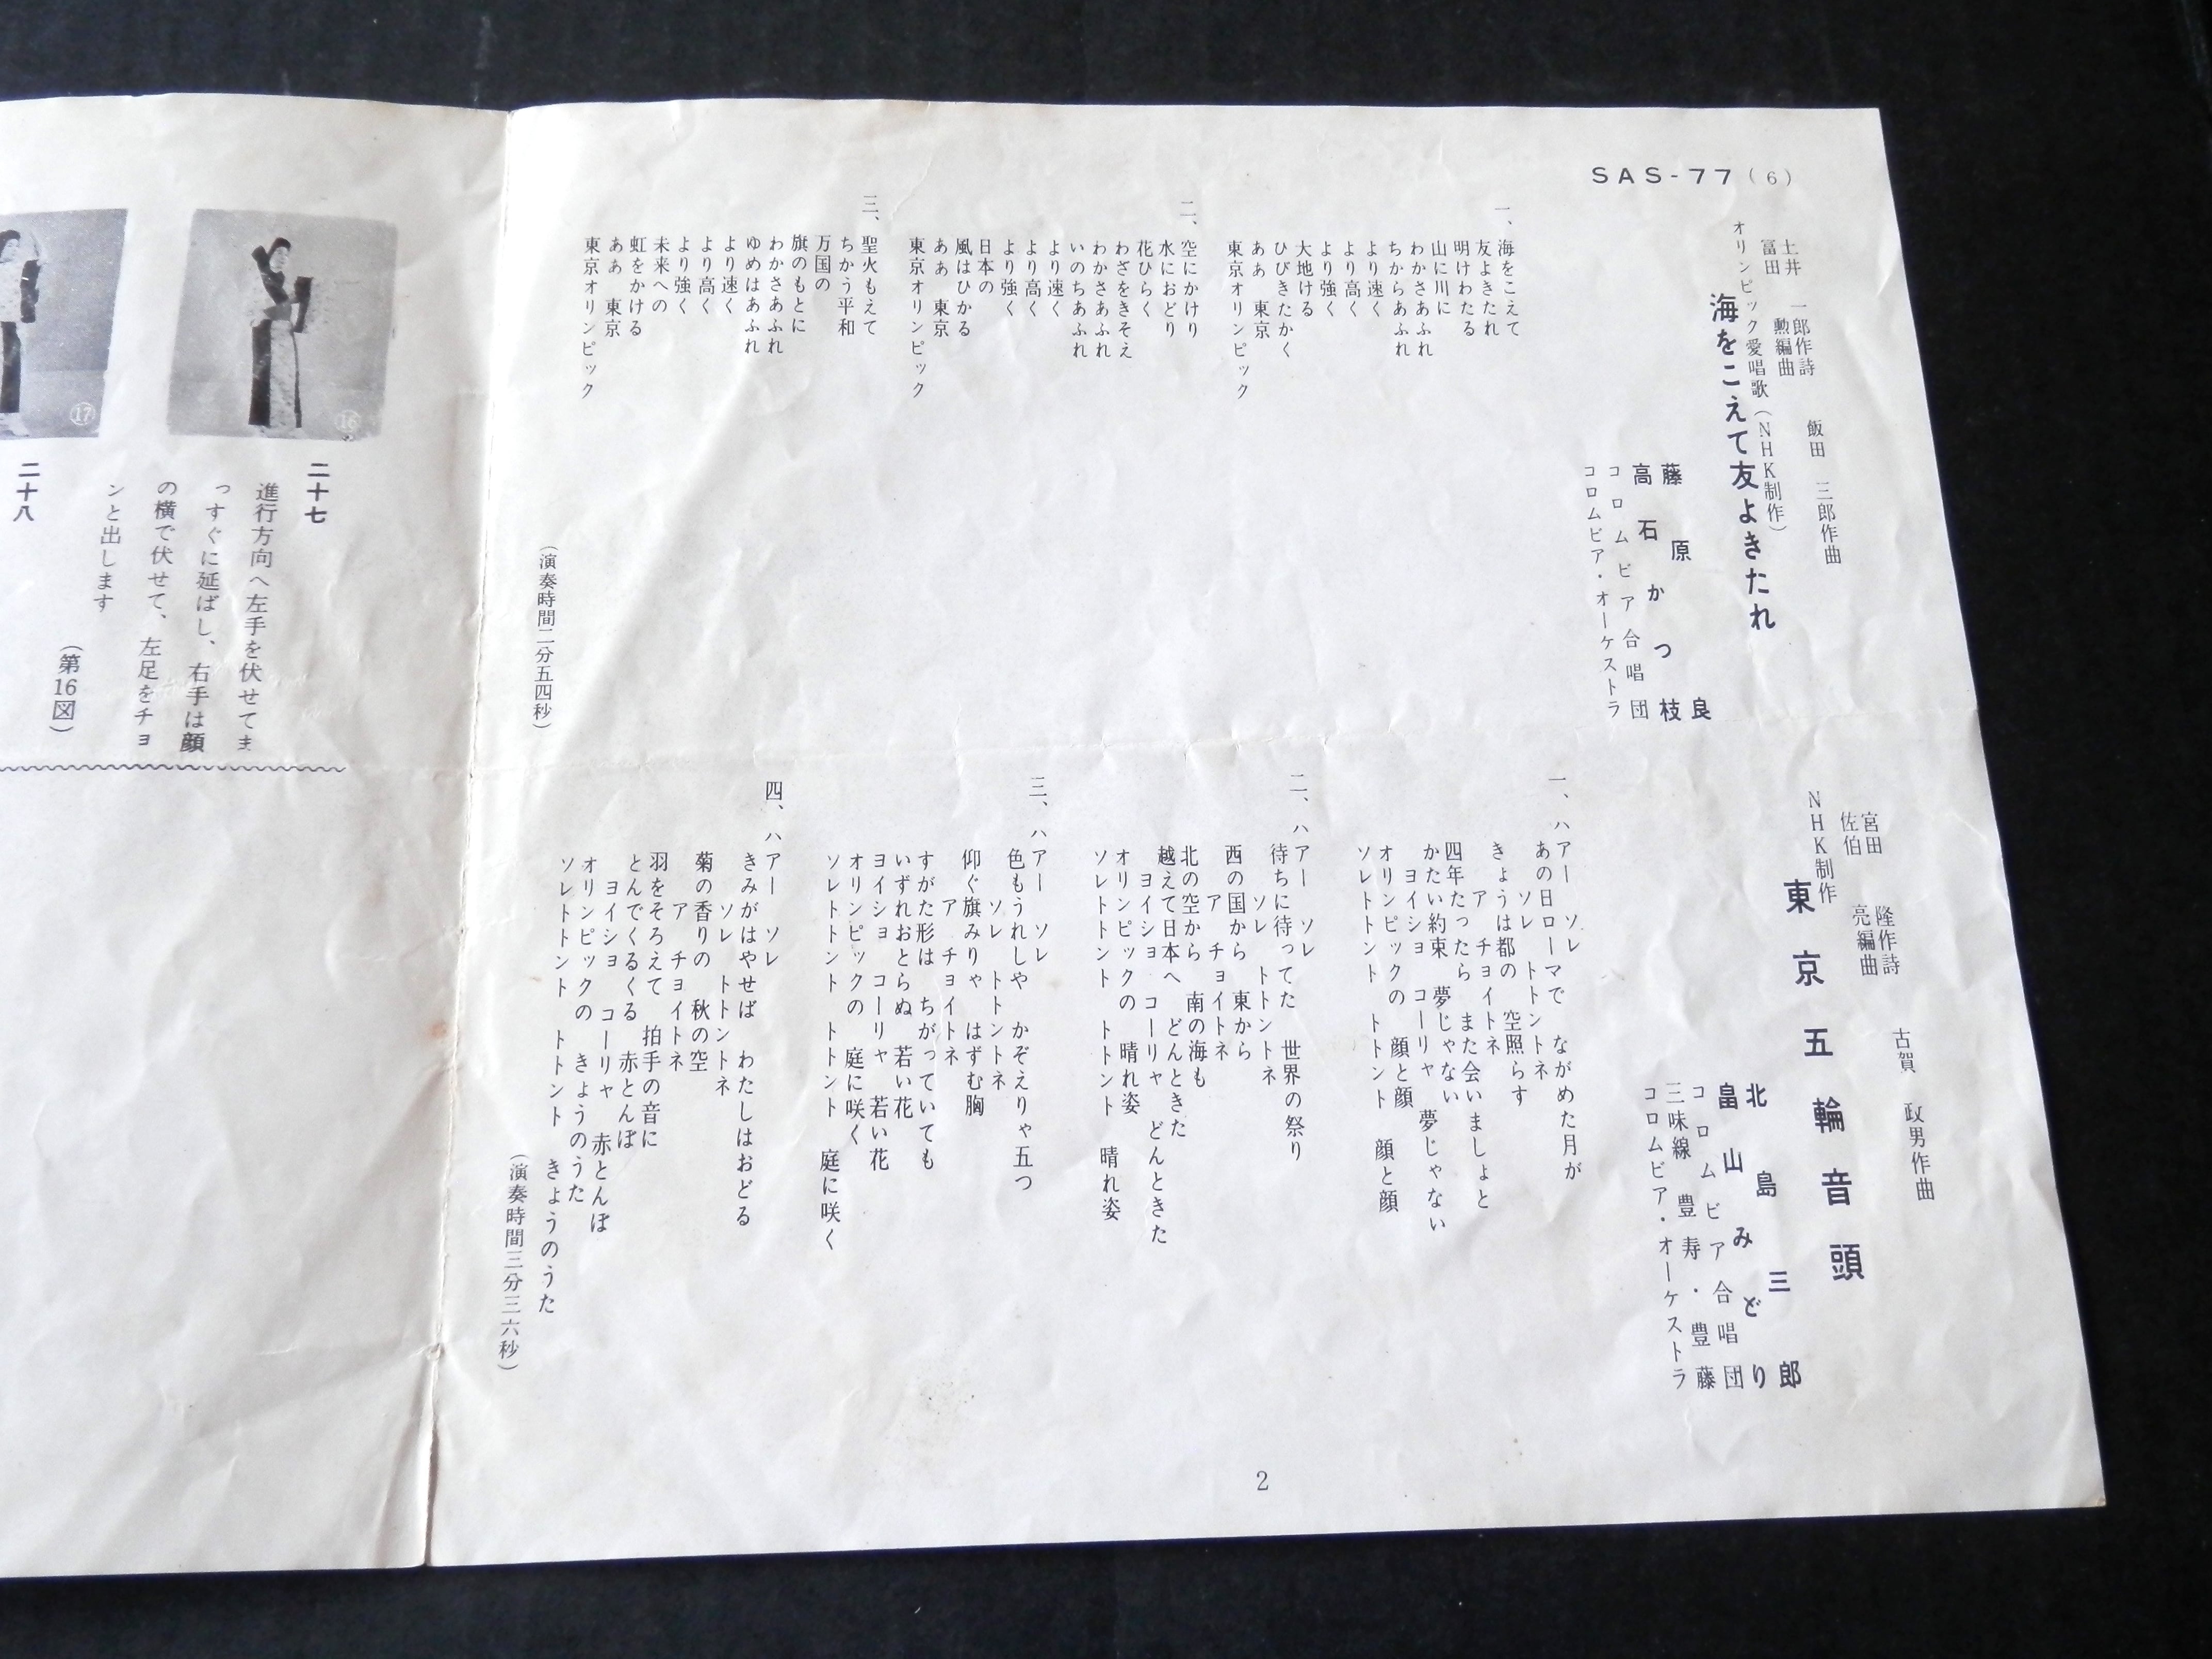 SAS-77(6)
土井 一郎作詩 飯田 三郎作曲
冨田 勲編曲
オリンピック愛唱歌(NHK制作)
海をこえて友よきたれ
藤原良
高石かつ枝
コロムビア合唱団
コロムビア・オーケストラ
一、海をこえて
友よきたれ
明けわたる
山に川に
わかさあふれ
ちからあふれ
より速く
より高く
より強く
大地ける
ひびきたかく
あぁ 東京
東京オリンピック
二、空にかけり
水におどり
花ひらく
わざをきそえ
わかさあふれ
いのちあふれ
より速く
より高く
より強く
日本の
風はひかる
あぁ 東京
東京オリンピック
三、聖火もえて
ちかう平和
万国の
旗のもとに
わかさあふれ
ゆめはあふれ
より速く
より高く
より強く
未来への
虹をかける
あぁ 東京
東京オリンピック
(演奏時間二分五四秒)
宮田 隆作詩 古賀 政男作曲
佐伯 亮編曲
NHK制作
東京五輪音頭
北島三郎
畠山みどり
コロムビア合唱団
三味線 豊寿・豊藤
コロムビア・オーケストラ
一、ハアー ソレ
あの日ローマで ながめた月が
ソレ トトントネ
きょうは都の 空照らす
ア チョイトネ
四年たったら また会いましょと
かたい約束 夢じゃない
ヨイショ コーリャ 夢じゃない
オリンピックの 顔と顔
ソレトトント トトント 顔と顔
二、ハアー ソレ
待ちに待ってた 世界の祭り
ソレ トトントネ
西の国から 東から
ア チョイトネ
北の空から 南の海も
越えて日本へ どんときた
ヨイショ コーリャ どんときた
オリンピックの 晴れ姿
ソレトトント トトント 晴れ姿
三、ハアー ソレ
色もうれしや かぞえりゃ五つ
ソレ トトントネ
仰ぐ旗みりゃ はずむ胸
ア チョイトネ
すがた形は ちがっていても
いずれおとらぬ 若い花
ヨイショ コーリャ 若い花
オリンピックの 庭に咲く
ソレトトント トトント 庭に咲く
四、ハアー ソレ
きみがはやせば わたしはおどる
ソレ トトントネ
菊の香りの 秋の空
ア チョイトネ
羽をそろえて 拍手の音に
とんでくるくる 赤とんぼ
ヨイショ コーリャ 赤とんぼ
オリンピックの きょうのうた
ソレトトント トトント きょうのうた
(演奏時間三分三六秒)
2
⑯
二十七
進行方向へ左手を伏せてま
っすぐに延ばし、右手は顔
の横で伏せて、左足をチョ
ンと出します
(第16図)
⑰
二十八